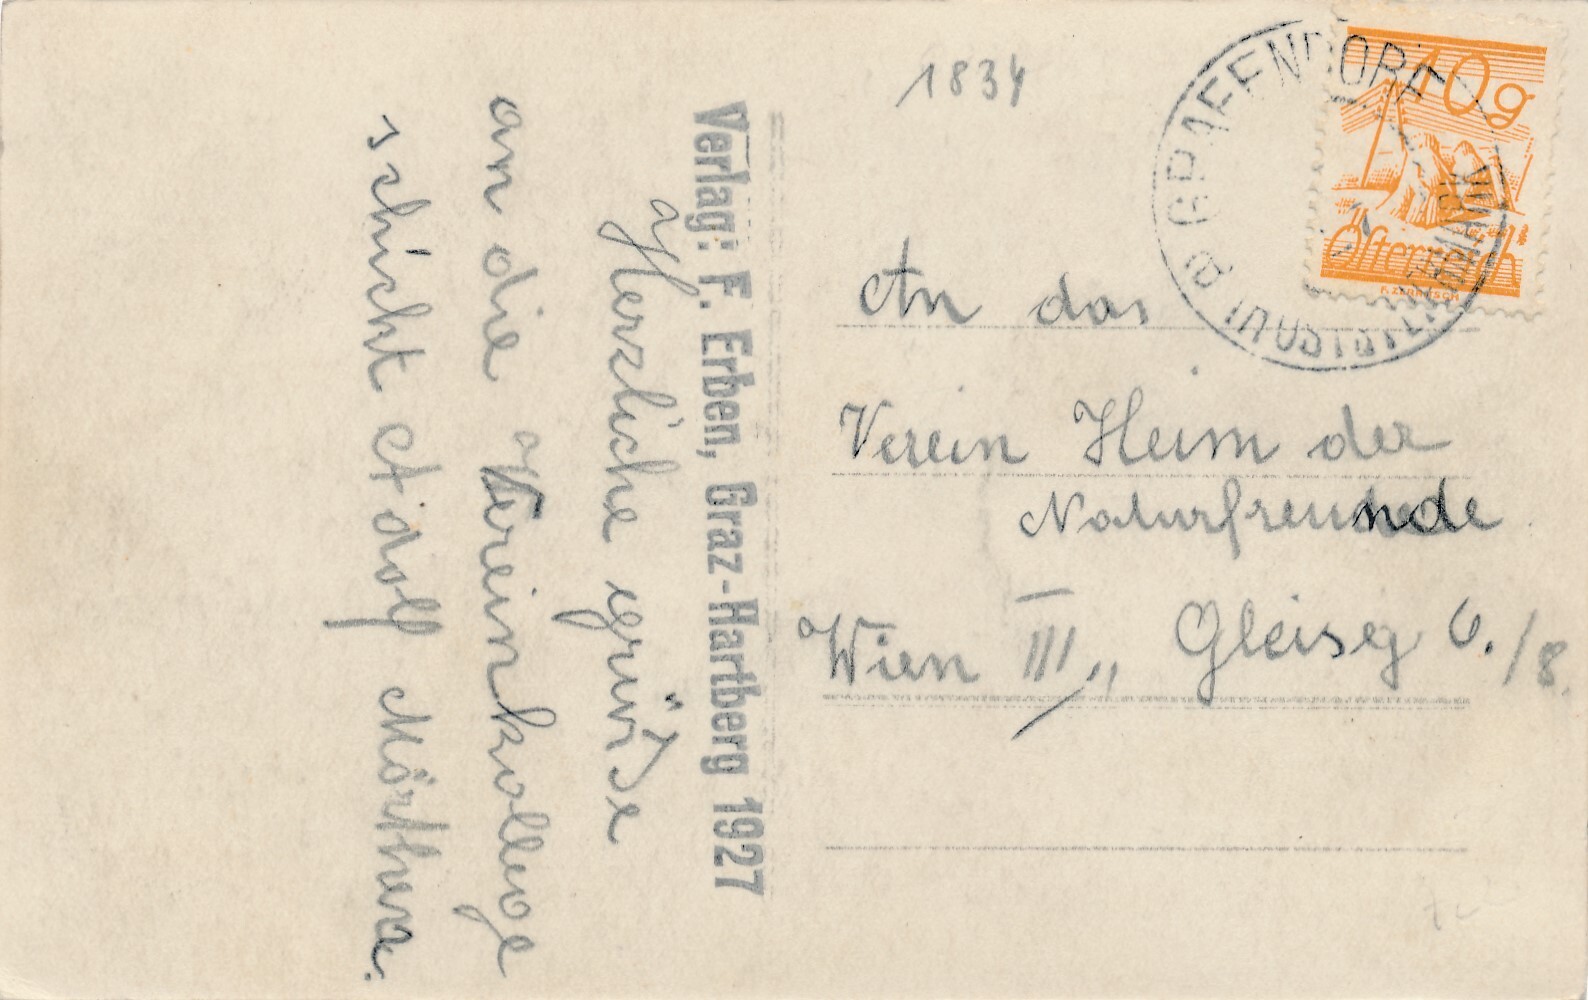 Herzliche grüße
an die Vereinkollege
schickt Adolf
Verlag: F. Erben, Graz-Hartberg 1927
1834
An das
Verein Heim der
Naturfreunde
Wien III,, Gleisg 6./8.
10g
Österreich
F. ZERRITSCH
GRAFENDORF